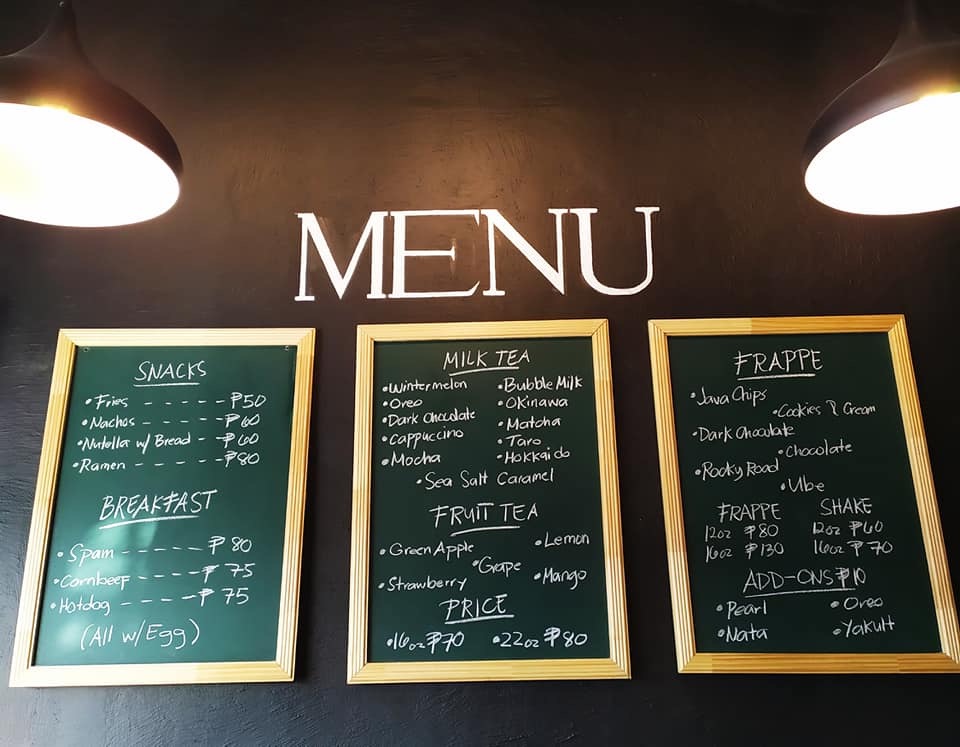 MENU
SNACKS
•Fries - - - - - - ₱50
•Nachos - - - - - ₱60
•Nutella w/ Bread - - ₱60
•Ramen - - - - - - ₱80
BREAKFAST
•Spam - - - - - - ₱80
•Cornbeef - - - - - ₱ 75
•Hotdog - - - - - ₱ 75
(All w/Egg)
MILK TEA
•Wintermelon •Bubble Milk
•Oreo •Okinawa
•Dark Chocolate •Matcha
•Cappuccino •Taro
•Mocha •Hokkaido
•Sea Salt Caramel
FRUIT TEA
•Green Apple •Lemon
•Grape
•Strawberry •Mango
PRICE
•16oz ₱70 •22oz ₱80
FRAPPE
•Java Chips
•Cookies & Cream
•Dark Chocolate
•Chocolate
•Rocky Road
•Ube
FRAPPE SHAKE
12oz ₱80 12oz ₱60
16oz ₱130 16oz ₱70
ADD-ONS ₱10
•Pearl •Oreo
•Nata •Yakult